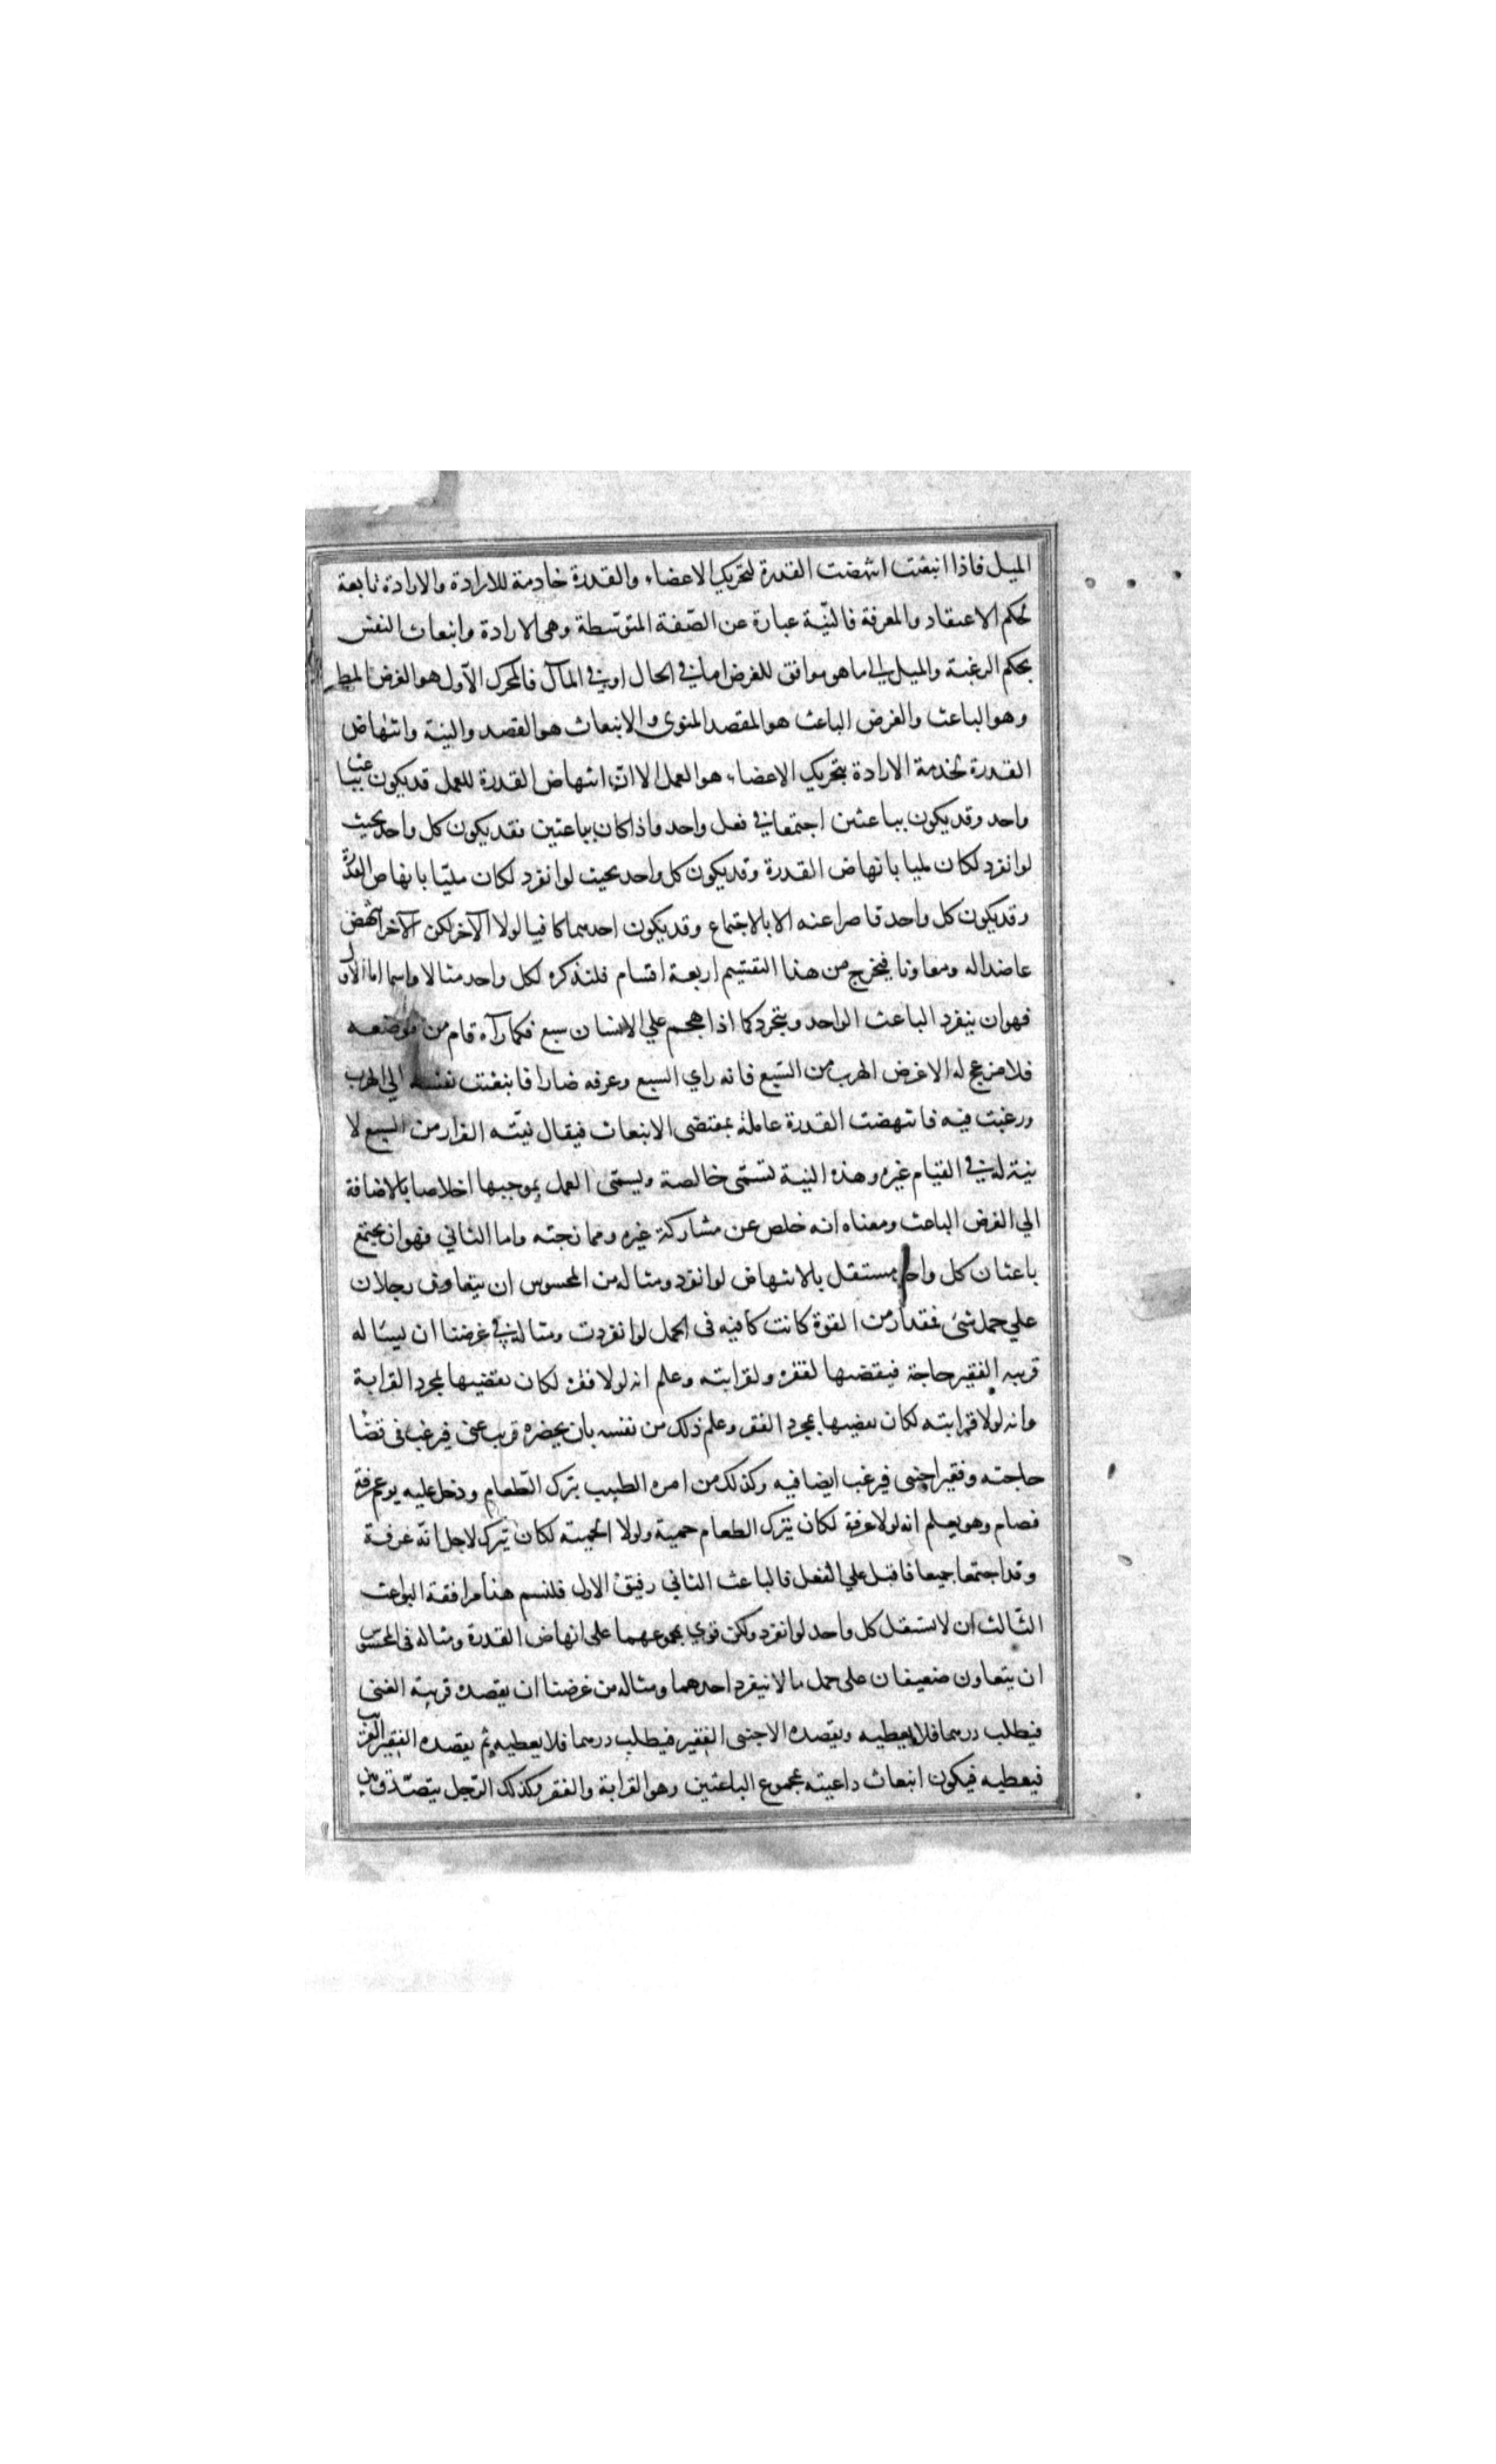 الميل فاذا انبعثت انتهضت القدرة لتحريك الاعضاء والقدرة خادمة للارادة والارادة تابعة
لحكم الاعتقاد والمعرفة فالنيّة عبارة عن الصّفة المتوسّطة وهى الارادة وانبعاث النفس
بحكم الرغبة والميل الى ما هو موافق للغرض اما في الحال او في المآل فالمحرك الاول هو الغرض المط
وهو الباعث والغرض الباعث هو المقصد المنوى والانبعاث هو القصد والنية وانتهاض
القدرة لخدمة الارادة بتحريك الاعضاء هو العمل الا انّ انتهاض القدرة للعمل قد يكون بباعث
واحد وقد يكون بباعثين اجتمعا في فعل واحد واذا كان بباعثين فقد يكون كل واحد بحيث
لو انفرد لكان مليا بانهاض القدرة وقد يكون كل واحد بحيث لو انفرد لكان مليّا بانهاض القدرة
وقد يكون كل واحد قاصرا عنه الا بالاجتماع وقد يكون احدهما كافيا لولا الآخر لكن الآخر انتهض
عاضدا له ومعاونا فيخرج من هذا التقسيم اربعة اقسام فلنذكر لكل واحد مثالا واسما اما الاول
فهو ان ينفرد الباعث الواحد ويتجرد كما اذا هجم علي الانسان سبع فكما رآه قام من موضعه
فلا مزعج له الا غرض الهرب من السّبع فانه راي السبع وعرفه ضارا فانبعثت نفسه الي الهرب
ورغبت فيه فانتهضت القدرة عاملة بمقتضى الانبعاث فيقال نيّته الفرار من السبع لا
نية له في القيام غيره وهذه النية تسمّى خالصة ويسمّى العمل بموجبها اخلاصا بالاضافة
الي الغرض الباعث ومعناه انه خلص عن مشاركة غيره وممازجته واما الثاني فهو ان يجتمع
باعثان كل واحد مستقل بالانتهاض لو انفرد ومثاله من المحسوس ان يتعاون رجلان
علي حمل شئ بمقدار من القوة كانت كافيه فى الحمل لو انفردت ومثاله في غرضنا ان يساله
قريبه الفقير حاجة فيقضيها لفقره ولقرابته وعلم انه لولا فقره لكان يقضيها بمجرد القرابة
وانه لولا قرابته لكان يقضيها بمجرد الفقر وعلم ذلك من نفسه بان يحضره قريب غنى فيرغب فى قضا
حاجته وفقير اجنبى فيرغب ايضا فيه وكذلك من امره الطبيب بترك الطّعام ودخل عليه يوم عرفة
فصام وهو يعلم انه لولا عرفة لكان يترك الطعام حمية ولولا الحمية لكان يترك لاجل انّه عرفة
وقد اجتمعا جميعا فاقبل علي الفعل فالباعث الثاني رفيق الاول فلنسم هذا مرافقة البواعث
الثّالث ان لا يستقل كل واحد لو انفرد ولكن قوي مجموعهما على انهاض القدرة ومثاله فى المحسوس
ان يتعاون ضعيفان على حمل ما لا ينفرد احدهما ومثاله من غرضنا ان يقصده قريبه الغنى
فيطلب درهما فلا يعطيه ويقصده الاجنبى الفقير فيطلب درهما فلا يعطيه ثم يقصده الفقير القريب
فيعطيه فيكون انبعاث داعيته بمجموع الباعثين وهو القرابة والفقر وكذلك الرّجل يتصدّق بين